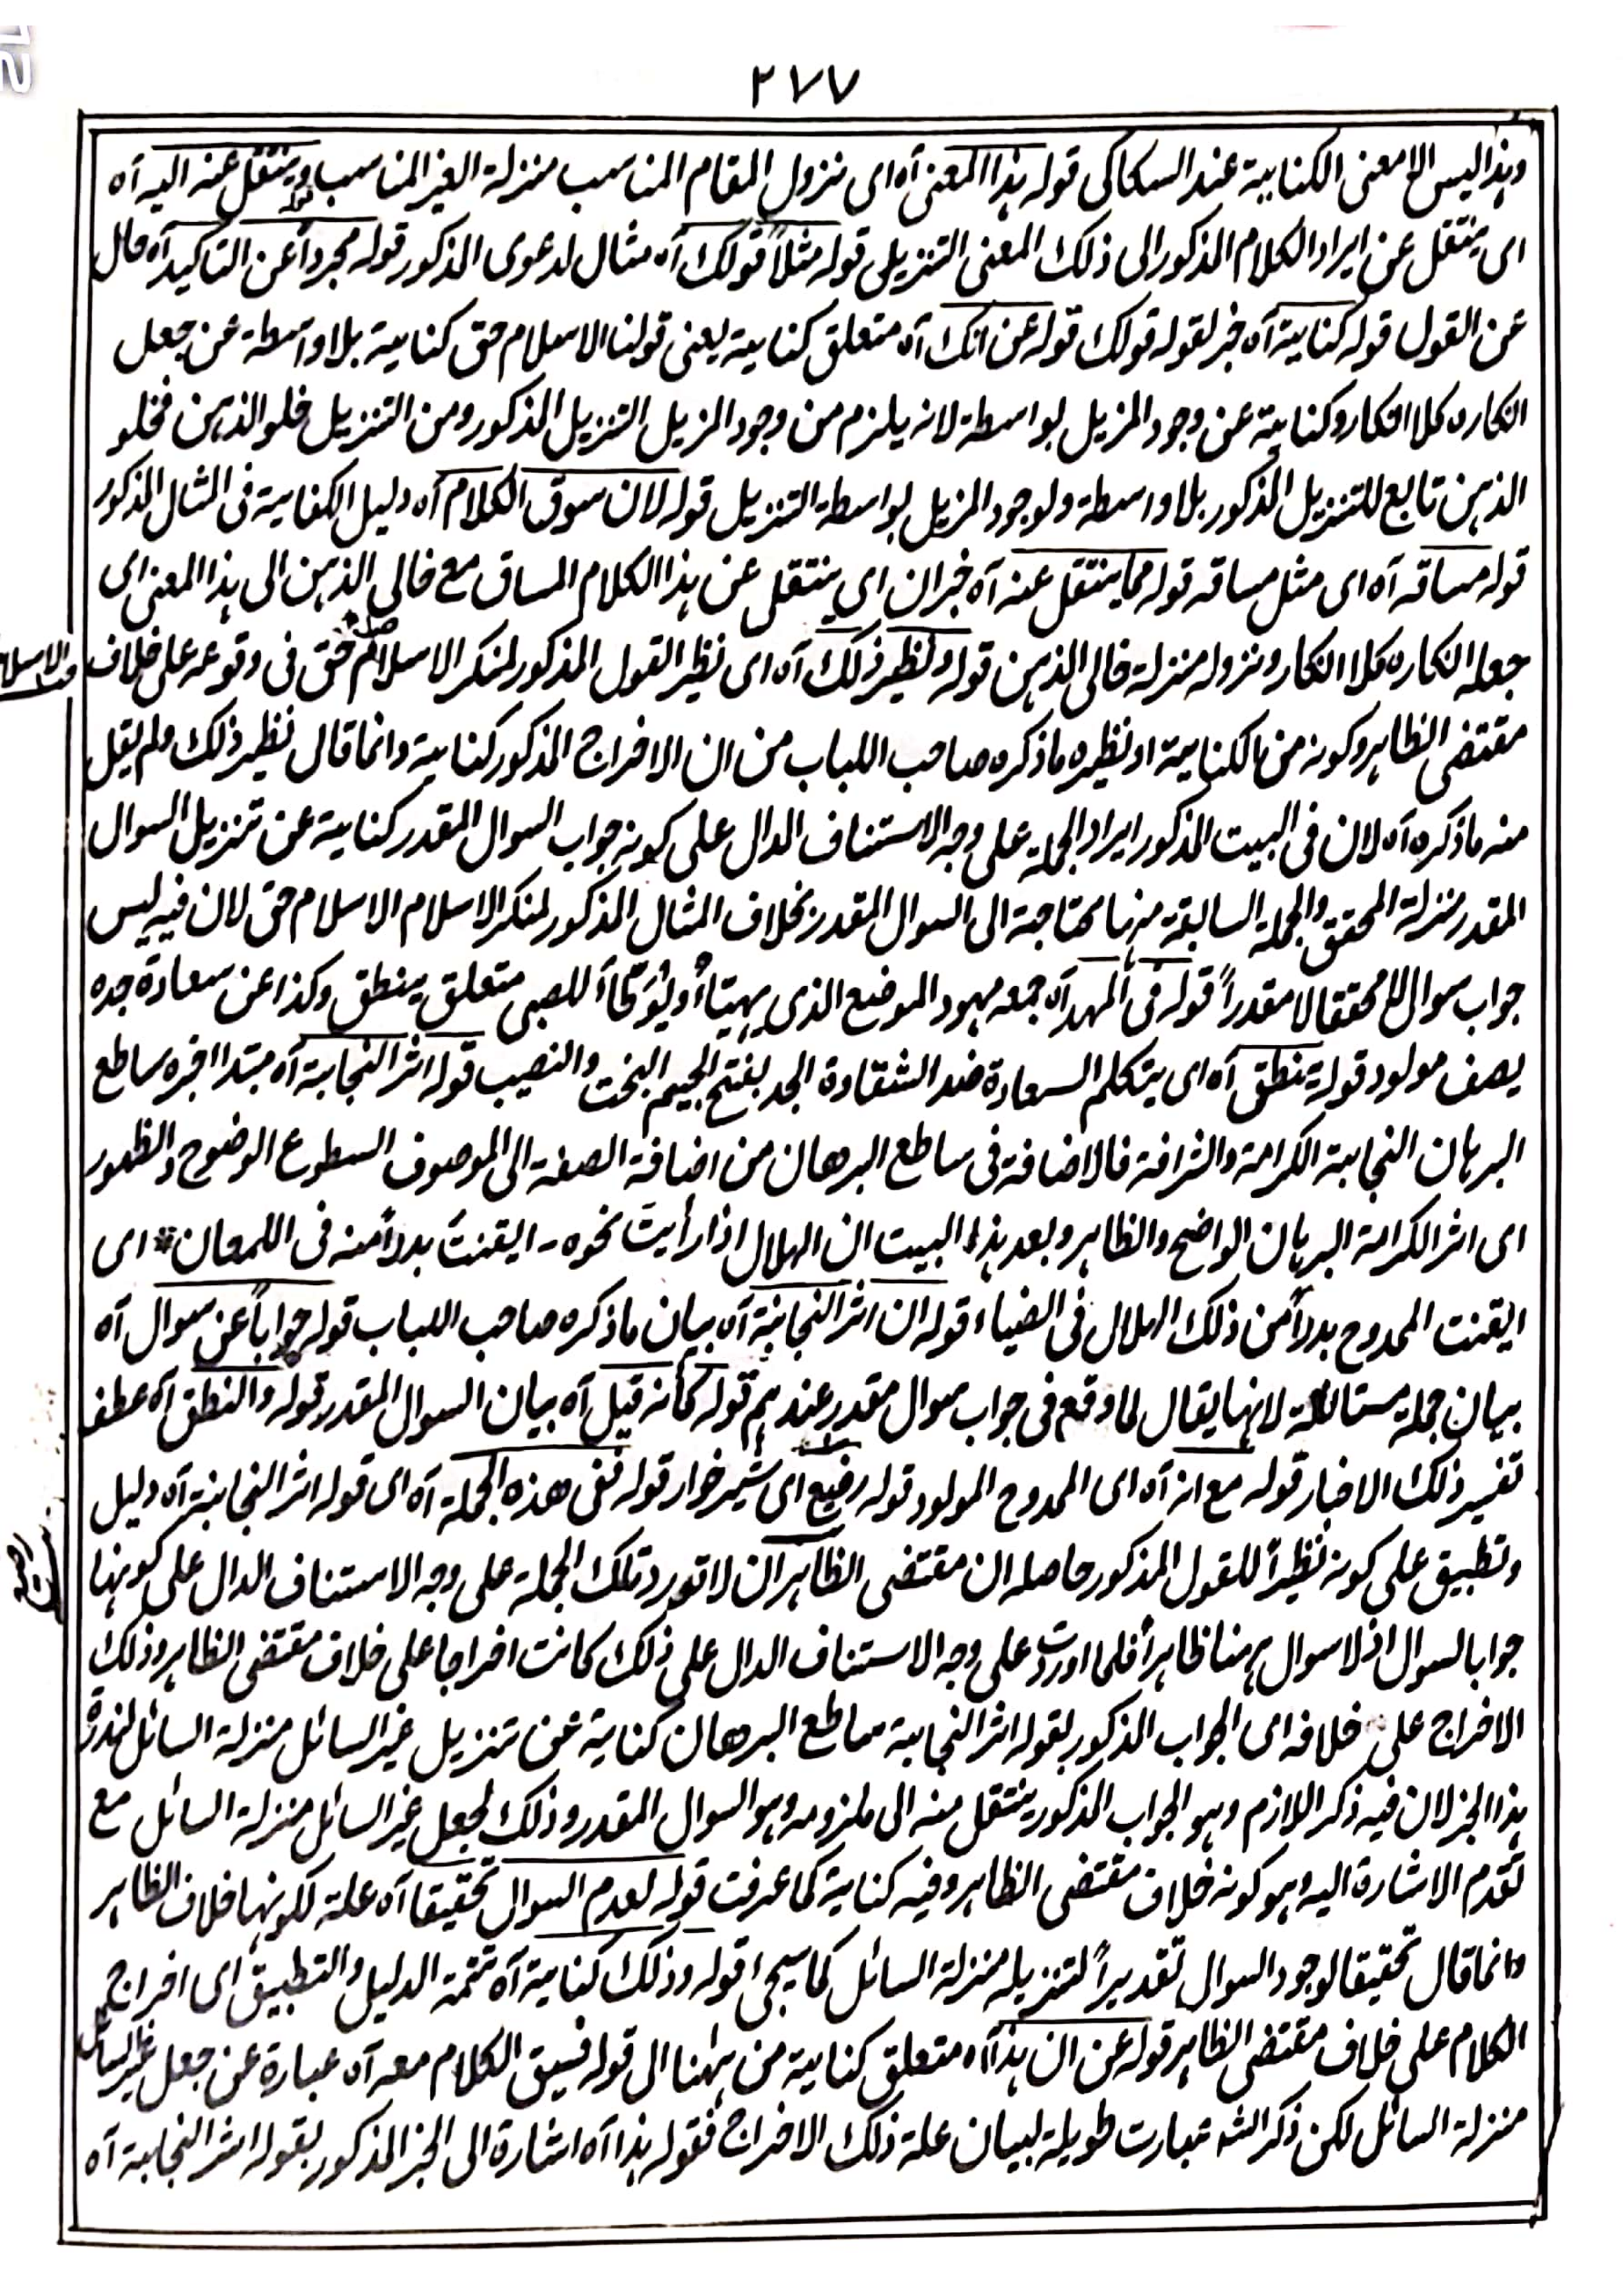 ٢٧٧
وہذا ليس الا معنى الكناية عند السكاكى قوله ہذا المعنى آه اى نزول المقام المناسب منزلة الغير المناسب قوله وينتقل عنه اليه آه
اى ينتقل عن ايراد الكلام المذكور الى ذلك المعنى التنزيلى قوله مثلاً قولك آه مثال لدعوى المذكور قوله مجرداً عن التاكيد آه حال
عن القول قوله كناية آه خبر لقوله قولك قوله عن انك آه متعلق كناية يعنى قولنا الاسلام حق كناية بلا واسطة عن جعل
انكاره كلا انكار وكناية عن وجود المزيل بواسطة لانه يلزم من وجود المزيل التنزيل المذكور ومن التنزيل خلو الذہن فخلو
الذہن تابع للتنزيل المذكور بلا واسطة ولوجود المزيل بواسطة التنزيل قوله لان سوق الكلام آه دليل الكناية فى المثال المذكور
قوله مساقه آه اى مثل مساقه قوله مما ينتقل عنه آه خبر ان اى ينتقل عن ہذا الكلام المساق مع خالى الذہن الى ہذا المعنى اى
جعله انكاره كلا انكار ونزوله منزلة خالى الذہن قوله ونظير ذلك آه اى نظير القول المذكور لمنكر الاسلام حق فى وقوعه على خلاف
الاسلام
مقتضى الظاہر وكونه من الكناية او نظيره ما ذكره صاحب اللباب من ان الاخراج المذكور كناية وانما قال نظير ذلك ولم يقل
منه ما ذكره آه لان فى البيت المذكور ايراد الجملة على وجه الاستئناف الدال على كونه جواب السوال المقدر كناية عن تنزيل السوال
المقدر منزلة المحقق والجملة السابقة منہا محتاجة الى السوال المقدر بخلاف المثال المذكور لمنكر الاسلام الاسلام حق لان فيه ليس
جواب سوال لا محققا لا مقدراً قوله فى المہد آه جمعه مہود الموضع الذى يہيّأ ويوطّأ للصبى متعلق ينطق وكذا عن سعادة جده
يصف مولود قوله ينطق آه اى يتكلم السعادة ضد الشقاوة الجد بفتح الجيم البخت والنصيب قوله اثر النجابة آه مبتدا اخبره ساطع
البرہان النجابة الكرامة والشرافة فالاضافة فى ساطع البرهان من اضافة الصفة الى الموصوف السطوع الوضوح والظہور
اى اثر الكرامة البرہان الواضح والظاہر وبعد ہذا البيت ان الہلال اذا رأيتَ نحوه - ايقنتَ بدراً منه فى اللمعان * اى
ايقنت الممدوح بدراً من ذلك الہلال فى الضياء قوله ان اثر النجابة آه بيان ما ذكره صاحب اللباب قوله جواباً عن سوال آه
بيان جملة مستانفة لانہا يقال لما وقع فى جواب سوال مقدر عندہم قوله كأنه قيل آه بيان السوال المقدر قوله والنطق آه عطف
تفسير ذلك الاخبار قوله مع انه آه اى الممدوح المولود قوله رضيع اى شير خوار قوله ففى هذه الجملة آه اى قوله اثر النجابة آه دليل
وتطبيق على كونه نظيراً للقول المذكور حاصله ان مقتضى الظاہر ان لا تورد تلك الجملة على وجه الاستئناف الدال على كونہا
جوابا لسوال اذ لا سوال ہہنا ظاہراً فلما اوردت على وجه الاستئناف الدال على ذلك كانت اخراجا على خلاف مقتضى الظاہر وذلك
الاخراج على خلافه اى الجواب المذكور بقوله اثر النجابة ساطع البرهان كناية عن تنزيل غير السائل منزلة السائل لندرة
ہذا الخبر لان فيه ذكر اللازم وہو الجواب المذكور ينتقل منه الى ملزومه وہو السوال المقدر وذلك لجعل غير السائل منزلة السائل مع
تقدم الاشارة اليه وہو كونه خلاف مقتضى الظاہر وفيه كناية كما عرفت قوله لعدم السوال تحقيقا آه علة لكونہا خلاف الظاہر
وانما قال تحقيقا لوجود السوال تقديراً لتنزيله منزلة السائل كما سيجىء قوله وذلك كناية آه تتمة الدليل والتطبيق اى اخراج
الكلام على خلاف مقتضى الظاہر قوله عن ان ہذا آه متعلق كناية من ہٰہنا الى قوله فسيق الكلام معه آه عبارة عن جعل غير السائل
منزلة السائل لكن ذكر الشه عبارت طويلة لبيان علة ذلك الاخراج فقوله ہذا آه اشارة الى الخبر المذكور بقوله اثر النجابة آه